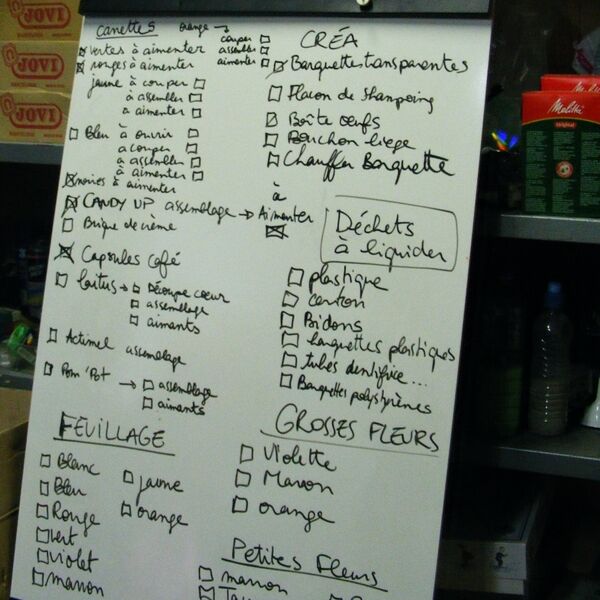 Canettes
orange → couper
assembler
aimenter
vertes à aimenter
rouges à aimenter
jaune à couper
à assembler
à aimenter
Bleu à ouvrir
à couper
à assembler
à aimenter
noires à aimenter
CANDY UP assemblage → à Aimenter
Brique de crème
Capsules Café
→ Découpe coeur
assemblage
aimants
Actimel assemblage
Pom'Pot → assemblage
aimants
FEUILLAGE
Blanc
Bleu
Rouge
vert
violet
marron
jaune
orange
CRÉA
Barquettes transparentes
Flacon de shampoing
Boîte oeufs
Bouchon liege
Chauffer Barquette
Déchets
à liquider
plastique
carton
Bidons
barquettes plastiques
tubes dentifrice...
Barquettes polystyrènes
GROSSES FLEURS
Violette
Marron
orange
Petites Fleurs
marron
JOVI
JOVI
JOVI
Melitta